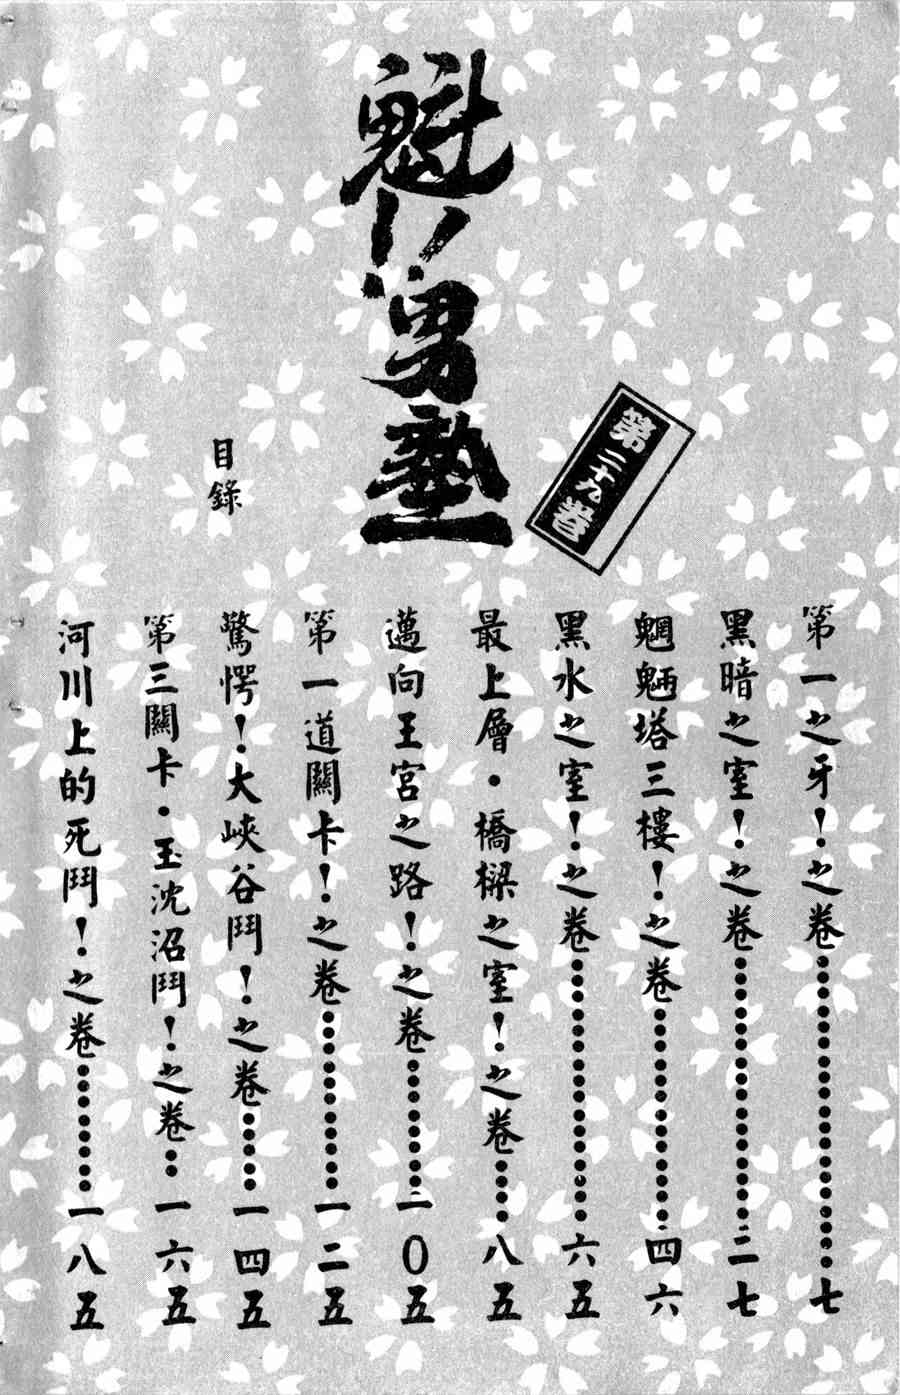 魁!!男塾
第二十九卷
目錄
第一之牙！之卷……………………七
黑暗之室！之卷……………………二七
魍魎塔三樓！之卷…………………四六
黑水之室！之卷……………………六五
最上層・橋樑之室！之卷……八五
邁向王宮之路！之卷…………一〇五
第一道關卡！之卷……………一二五
驚愕！大峽谷鬥！之卷………一四五
第三關卡・玉沈沼鬥！之卷…一六五
河川上的死鬥！之卷…………一八五